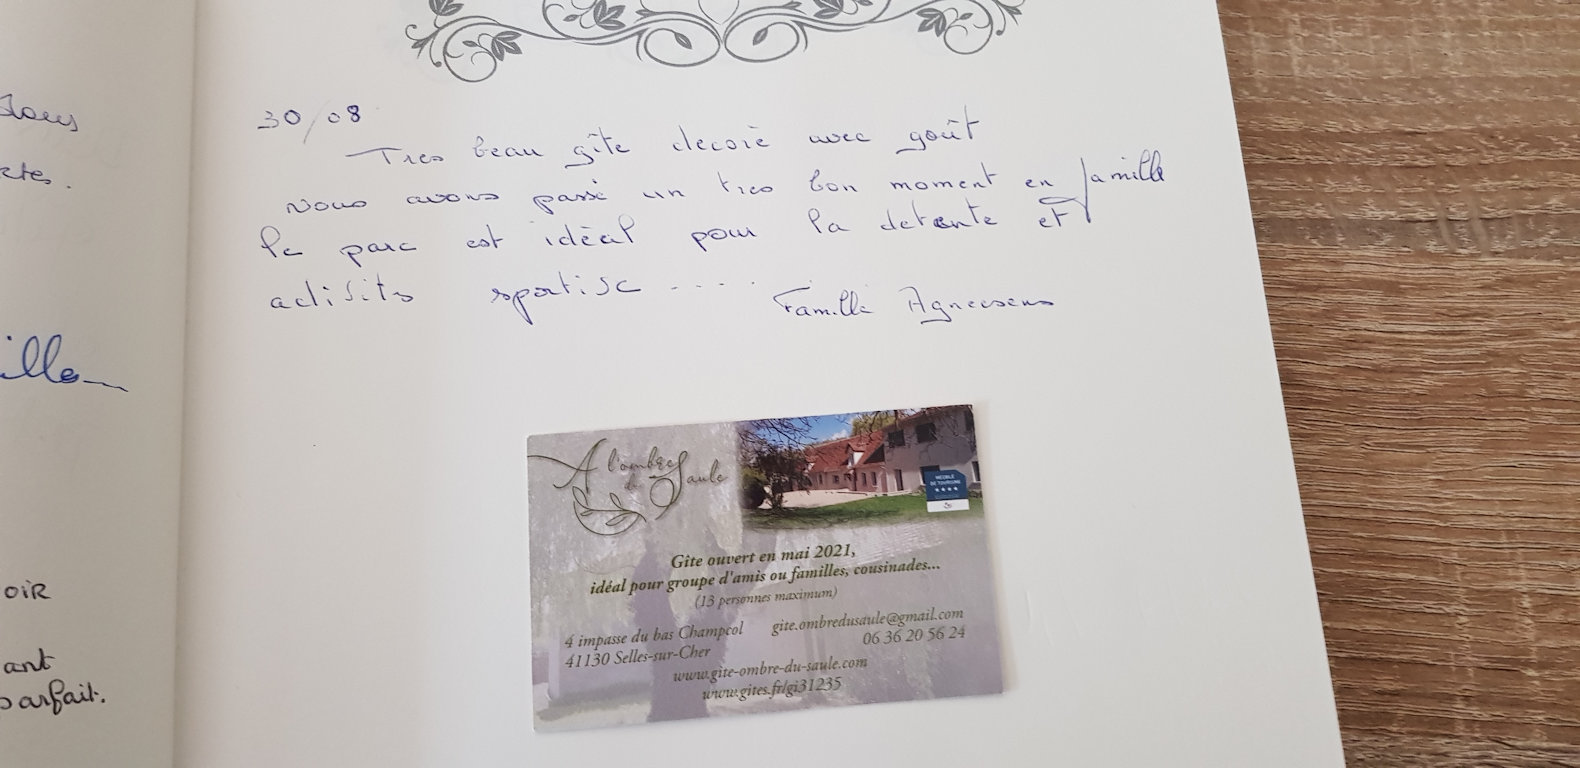 dous
ctes.
ille
oir
ant
parfait.
30/08
Tres beau gîte decoré avec goût
Nous avons passé un tres bon moment en famille
le parc est idéal pour la detente et
activités sportive .....
Famille Agneesens
A l'ombre
du Saule
MEUBLÉ
DE TOURISME
★★★★
Gîte ouvert en mai 2021,
idéal pour groupe d'amis ou familles, cousinades...
(13 personnes maximum)
4 impasse du bas Champcol
41130 Selles-sur-Cher
gite.ombredusaule@gmail.com
06 36 20 56 24
www.gite-ombre-du-saule.com
www.gites.fr/gi31235